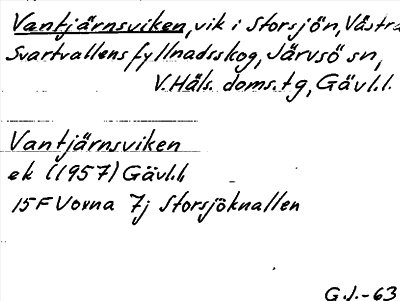 Vantjärnsviken, vik i Storsjön, Västra
Svartvallens fyllnadsskog, Järvsö sn,
V. Häls. doms. tg, Gävl.l.
Vantjärnsviken
ek (1957) Gävl.l.
15F Voxna 7j Storsjöknallen
G.J.-63